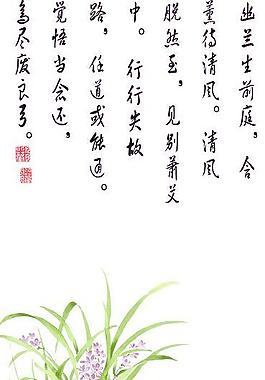 幽兰生前庭，含
薰待清风。清风
脱然至，见别萧艾
中。行行失故
路，任道或能通。
觉悟当念还，
鸟尽废良弓。